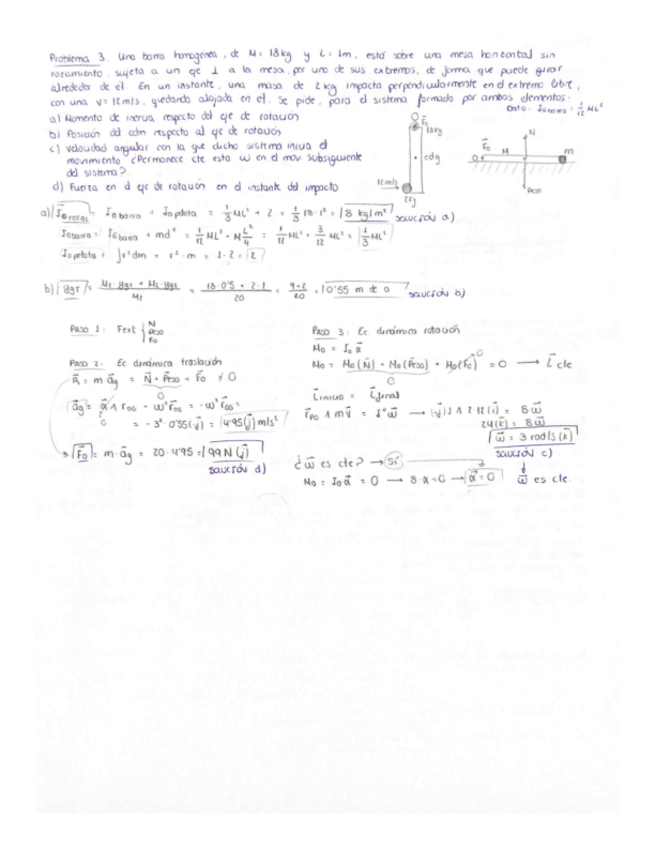 Problema 3. Una barra homogénea, de M = 18 kg y L = 1m, está sobre una mesa horizontal sin
rozamiento, sujeta a un eje ⊥ a la mesa, por uno de sus extremos, de forma que puede girar
alrededor de el. En un instante, una masa de 2 kg impacta perpendicularmente en el extremo libre,
con una v = 12 m/s, quedando alojada en el. Se pide, para el sistema formado por ambos elementos:
Dato: I barra = 1/12 ML²
a) Momento de inercia, respecto del eje de rotación
b) Posición del cdm respecto al eje de rotación
c) Velocidad angular con la que dicho sistema inicia el
movimiento ¿Permanece cte esta ω en el mov. subsiguiente
del sistema?
d) Fuerza en el eje de rotación en el instante del impacto
O
F₀
18kg
cdg
12m/s
2kg
N
F₀
O
M
m
Peso
a) I₀ total = I₀ barra + I₀ pelota = 1/3 ML² + 2 = 1/3 18·1² + 2 = 8 kg/m² solución a)
I₀ barra = I G barra + md² = 1/12 ML² + M L²/4 = 1/12 ML² + 3/12 ML² = 1/3 ML²
I₀ pelota = ∫r²dm = r²·m = 1·2 = 2
b)
= 18·0'5 + 2·1 / 20 = 9+2 / 20 = 0'55 m de O solución b)
Paso 1: Fext { N Peso F₀
Paso 2: Ec dinámica traslación
R = m a_g = N + Peso + F₀ ≠ 0
0
a_g = α ∧ r_OG - ω² r_OG = -ω² r_OG =
0
= -3²·0'55(-j) = 4'95(j) m/s²
F₀ = m·a_g = 20·4'95 = 99 N (j)
solución d)
Paso 3: Ec dinámica rotación
M₀ = I₀ α
M₀ = M₀(N) + M₀(Peso) + M₀(F₀) = 0 → L cte
0
0
L inicio = L final
24(k) = 8ω
ω = 3 rad/s (k)
solución c)
¿ω es cte? → Sí
M₀ = I₀α = 0 → 8·α = 0 → α = 0
ω es cte.